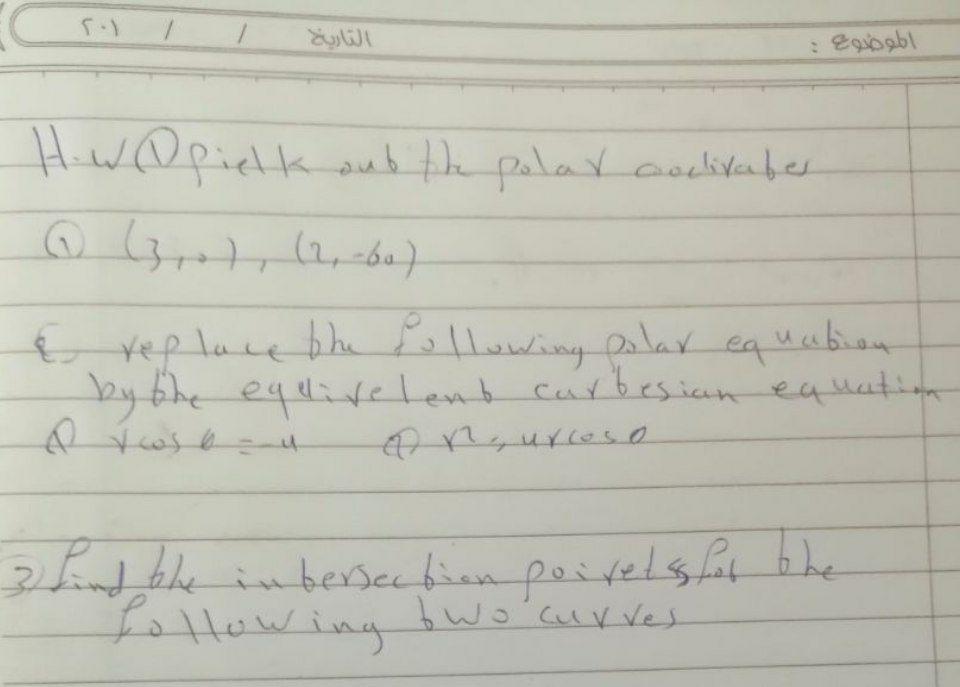 الموضوع : التاريخ / / ٢٠١
H.W ① pielk out the polar
① (3,0), (2,-60)
replace the following polar equation
by the equivelent cartesian equation
① rcos θ = -4 ② r² = 4rcosθ
3) find the intersection points for the
following two curves